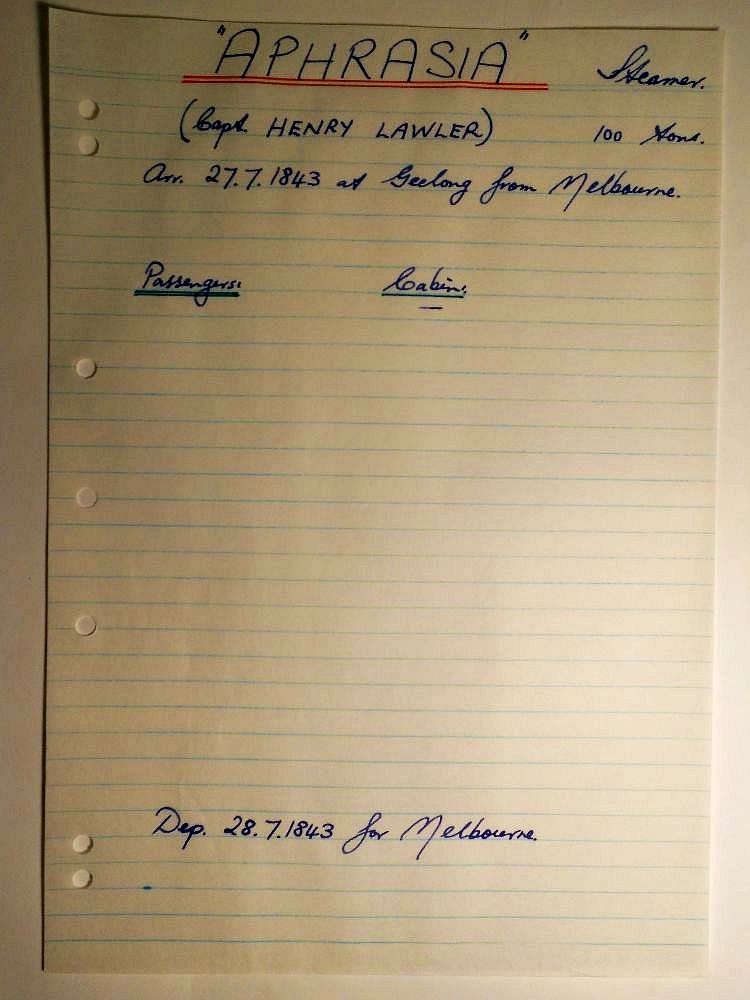 "APHRASIA" Steamer.
(Capt. HENRY LAWLER) 100 tons.
Arr. 27.7.1843 at Geelong from Melbourne.
Passengers: Cabin:
Dep. 28.7.1843 for Melbourne.